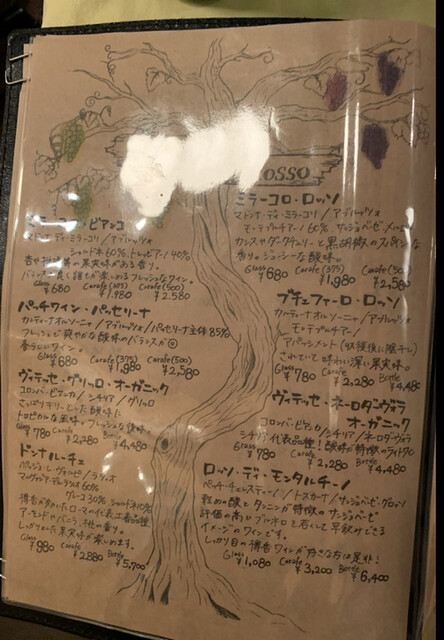 ビアンコ
マドンナ・ディ・ミラーコリ / アブルッツォ
シャルドネ60% トレッビアーノ 40%
の果実味がある香り。
バランス良く誰もが楽しめるフレッシュなワイン。
Glass Carafe(375) Carafe(500)
¥680 ¥1,980 ¥2,580
パッチワイン・パッセリーナ
カンティーナ・オルソーニャ / アブルッツォ / パッセリーナ主体85%
フレッシュで爽やかな酸味のバランスが
香り良いワイン。
Glass Carafe(375) Carafe(500)
¥680 ¥1,980 ¥2,580
ヴィテッセ・グリッロ・オーガニック
コロンバ・ビアンカ / シチリア / グリッロ
さっぱりキリッとした酸味に
トロピカルな風味。フレッシュな後味。
Glass Carafe Bottle
¥780 ¥2,280 ¥4,480
ドンナルーチェ
ポッジョ・レ・ヴォルピ / ラツィオ
マルヴァジア・デル・ラツィオ 60%
グレコ 30% シャルドネ10%
樽香が効いたローマの代表土着品種
アーモンドやバニラ、桃の香り。
しっかりした果実味が楽しめます。
Glass Carafe Bottle
¥980 ¥2,880 ¥5,700
ROSSO
ミラーコロ・ロッソ
マドンナ・ディ・ミラーコリ / アブルッツォ
モンテプルチアーノ 60% サンジョベーゼ
カシスやダークチェリーと黒胡椒のスパイシーな
香り。ジューシーな酸味。
Glass Carafe(375) Carafe(500)
¥680 ¥1,980 ¥2,580
ブチェファーロ・ロッソ
カンティーナ・オルソーニャ / アブルッツォ
モンテプルチアーノ
アパッシメント(収穫後に陰干し)
されていて味わい深い果実味。
Glass Carafe Bottle
¥780 ¥2,280 ¥4,480
ヴィテッセ・ネーロダーヴォラ
オーガニック
コロンバ・ビアンカ / シチリア / ネーロ・ダーヴォラ
シチリア代表品種!酸味が特徴のライトな
Glass Carafe Bottle
¥780 ¥2,280 ¥4,480
ロッソ・ディ・モンタルチーノ
ペッチ・チェレスティーノ / トスカーナ / サンジョベーゼ・グロッソ
軽めの酸とタンニンが特徴のサンジョベーゼ
評価の高いブルネロを若くして早飲みできる
イメージのワインです。
しっかり目の樽香ワインが好きな方は是非!
Glass Carafe Bottle
¥1,080 ¥3,200 ¥6,400